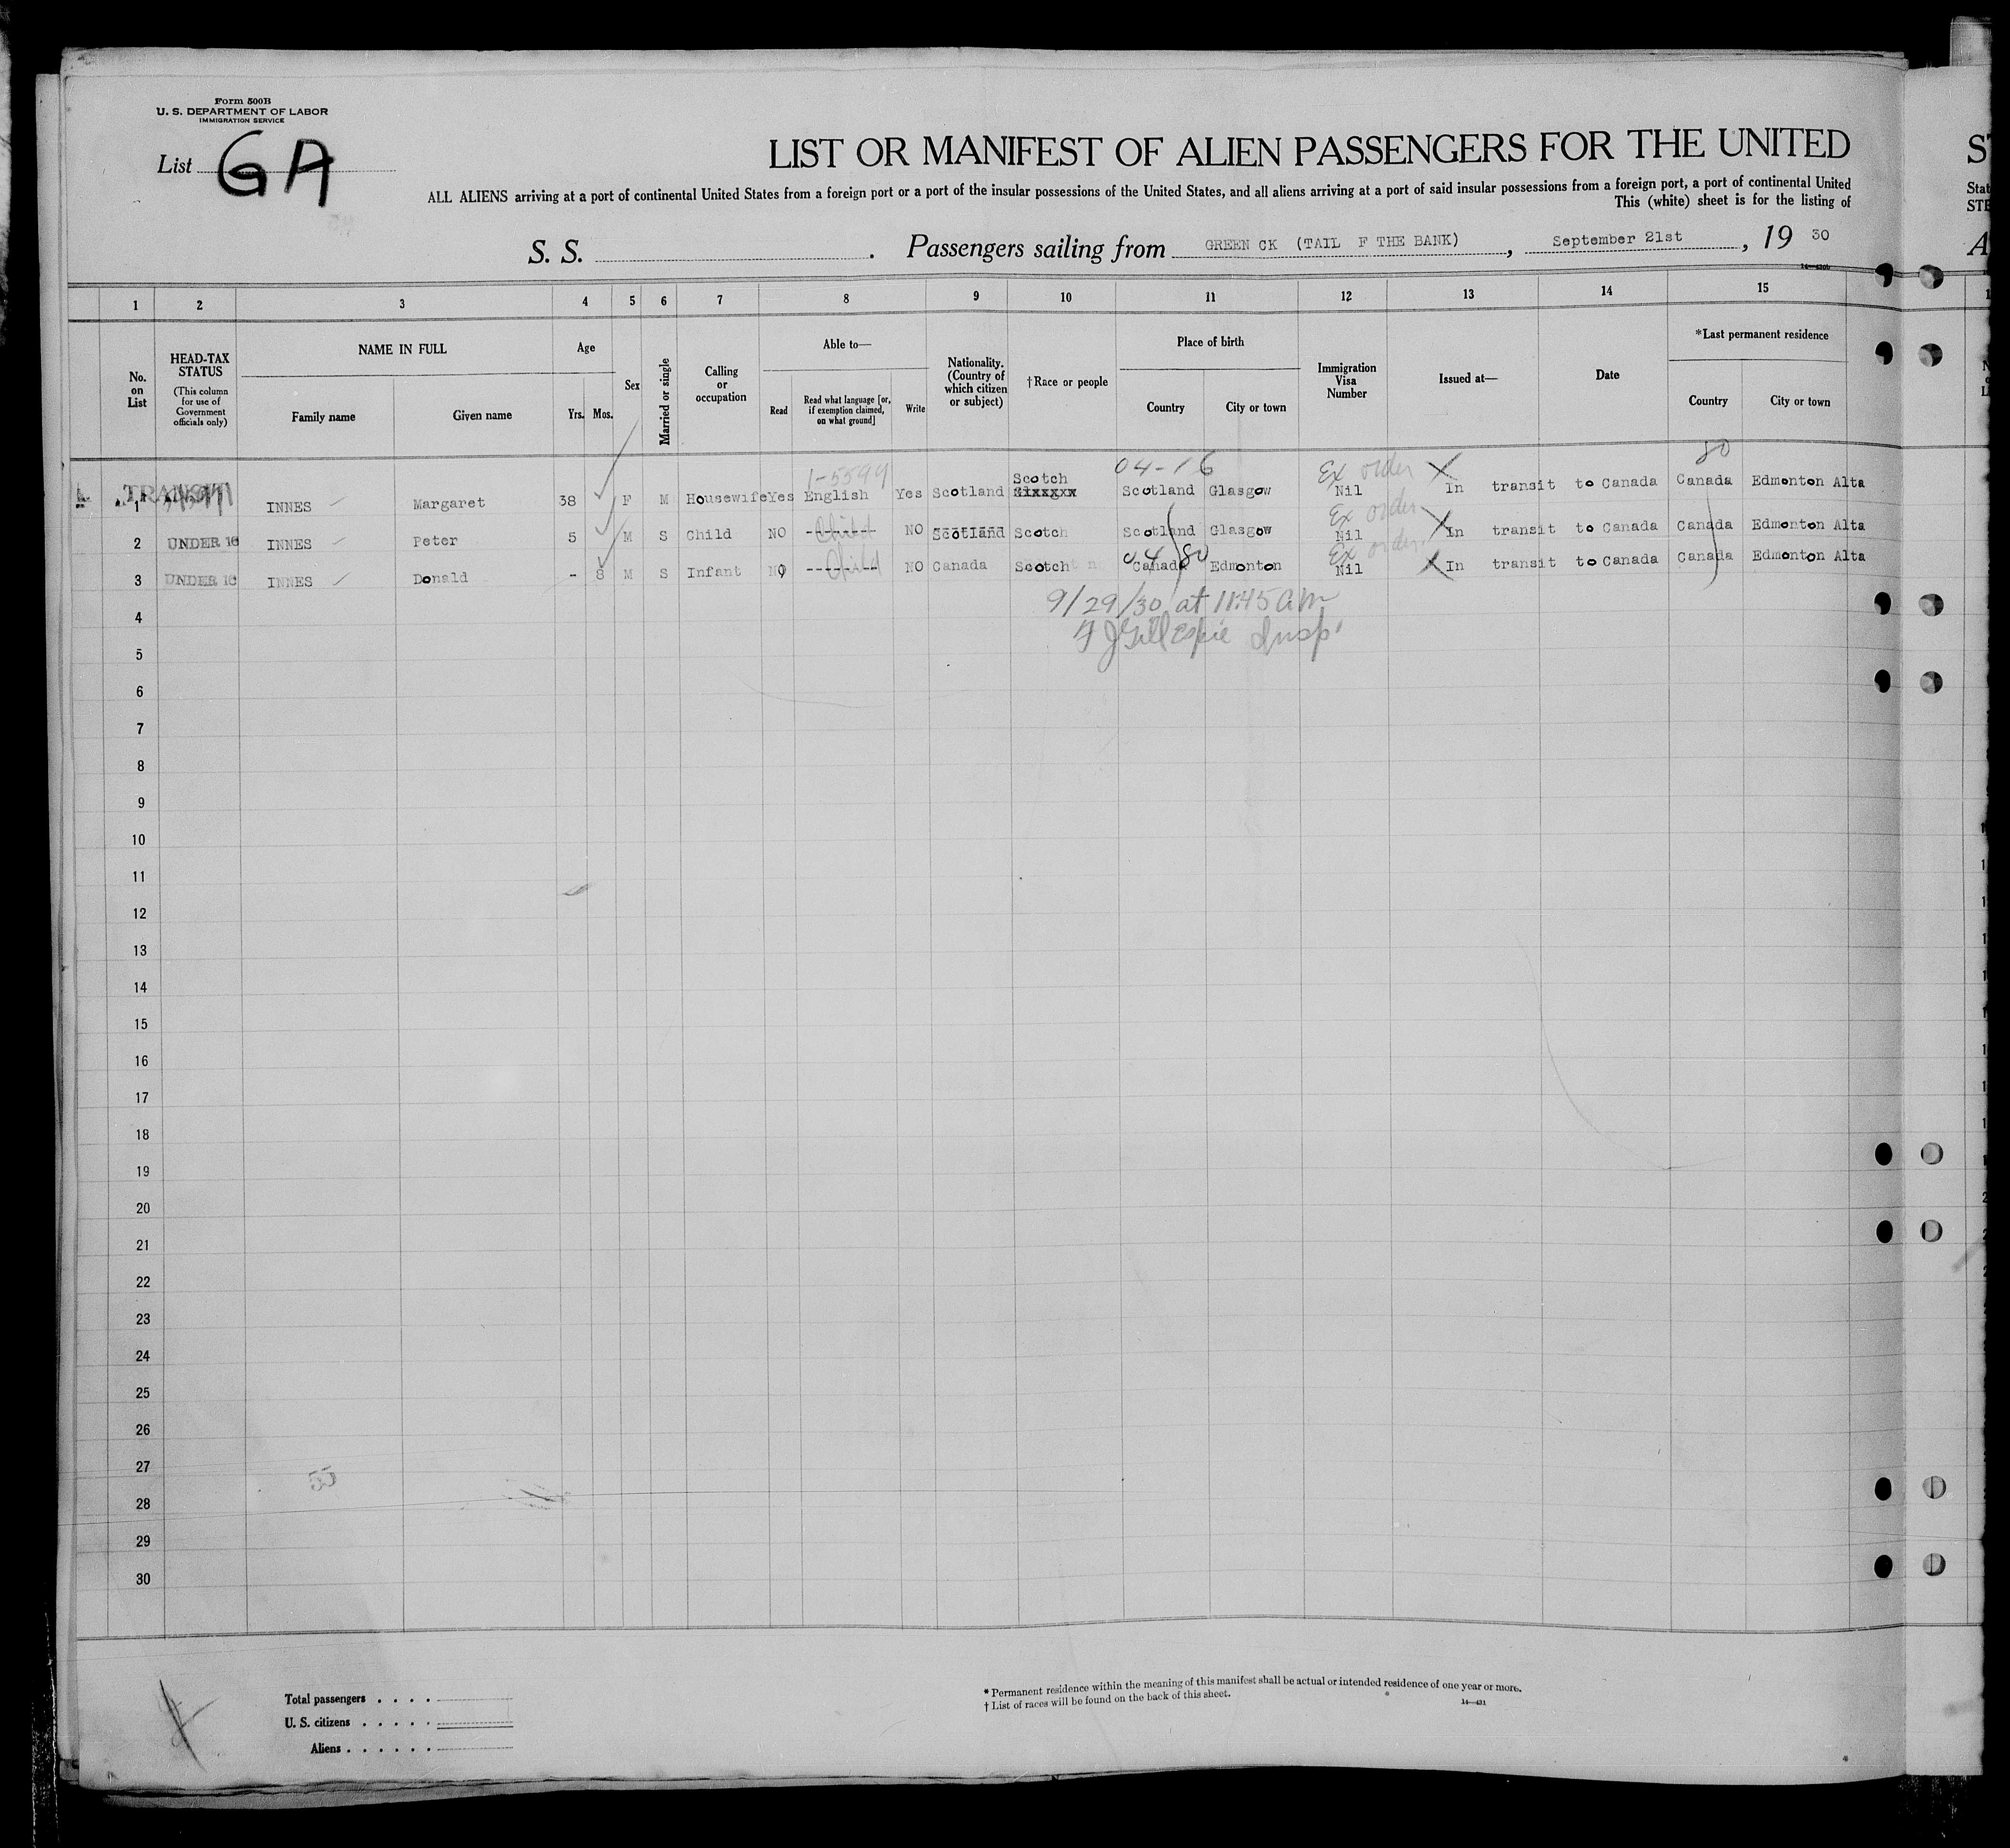 Form 500B
U. S. DEPARTMENT OF LABOR
IMMIGRATION SERVICE
List GA
LIST OR MANIFEST OF ALIEN PASSENGERS FOR THE UNITED
ALL ALIENS arriving at a port of continental United States from a foreign port or a port of the insular possessions of the United States, and all aliens arriving at a port of said insular possessions from a foreign port, a port of continental United
This (white) sheet is for the listing of
S. S. . Passengers sailing from GREEN CK (TAIL F THE BANK) , September 21st , 19 30
1 2 3 4 5 6 7 8 9 10 11 12 13 14 15
No. on List
HEAD-TAX STATUS
(This column for use of Government officials only)
NAME IN FULL
Family name Given name
Age
Yrs. Mos.
Sex
Married or single
Calling or occupation
Able to—
Read
Read what language [or, if exemption claimed, on what ground]
Write
Nationality. (Country of which citizen or subject)
†Race or people
Place of birth
Country City or town
Immigration Visa Number
Issued at—
Date
*Last permanent residence
Country City or town
1-5599 04-16 Ex order 80
Scotch
1 TRANSIT INNES Margaret 38 F M Housewife Yes English Yes Scotland Scotland Glasgow Nil In transit to Canada Canada Edmonton Alta
Ex order
2 UNDER 16 INNES Peter 5 M S Child NO Child NO Scotland Scotch Scotland Glasgow Nil In transit to Canada Canada Edmonton Alta
04 80 Ex order
3 UNDER 16 INNES Donald - 8 M S Infant NO Child NO Canada Scotch Canada Edmonton Nil In transit to Canada Canada Edmonton Alta
9/29/30 at 11:45 am
4
Gillespie Insp.
5
6
7
8
9
10
11
12
13
14
15
16
17
18
19
20
21
22
23
24
25
26
27
28
29
30
Total passengers . . . .
U. S. citizens . . . . .
Aliens . . . . . .
* Permanent residence within the meaning of this manifest shall be actual or intended residence of one year or more.
† List of races will be found on the back of this sheet.
14—431